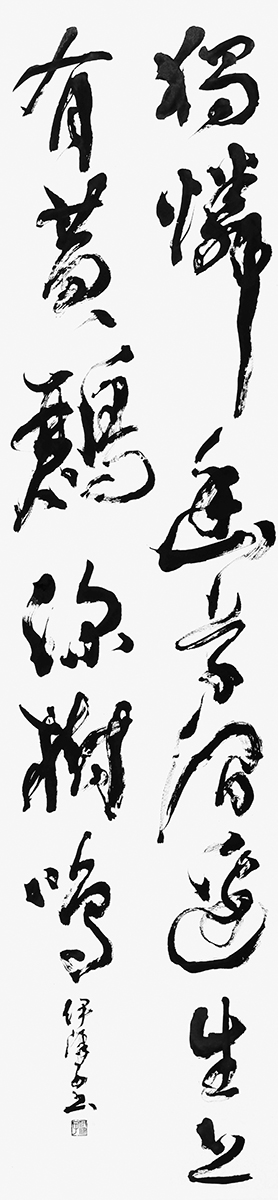 獨憐幽草澗邊生上
有黃鸝深樹鳴
伊書